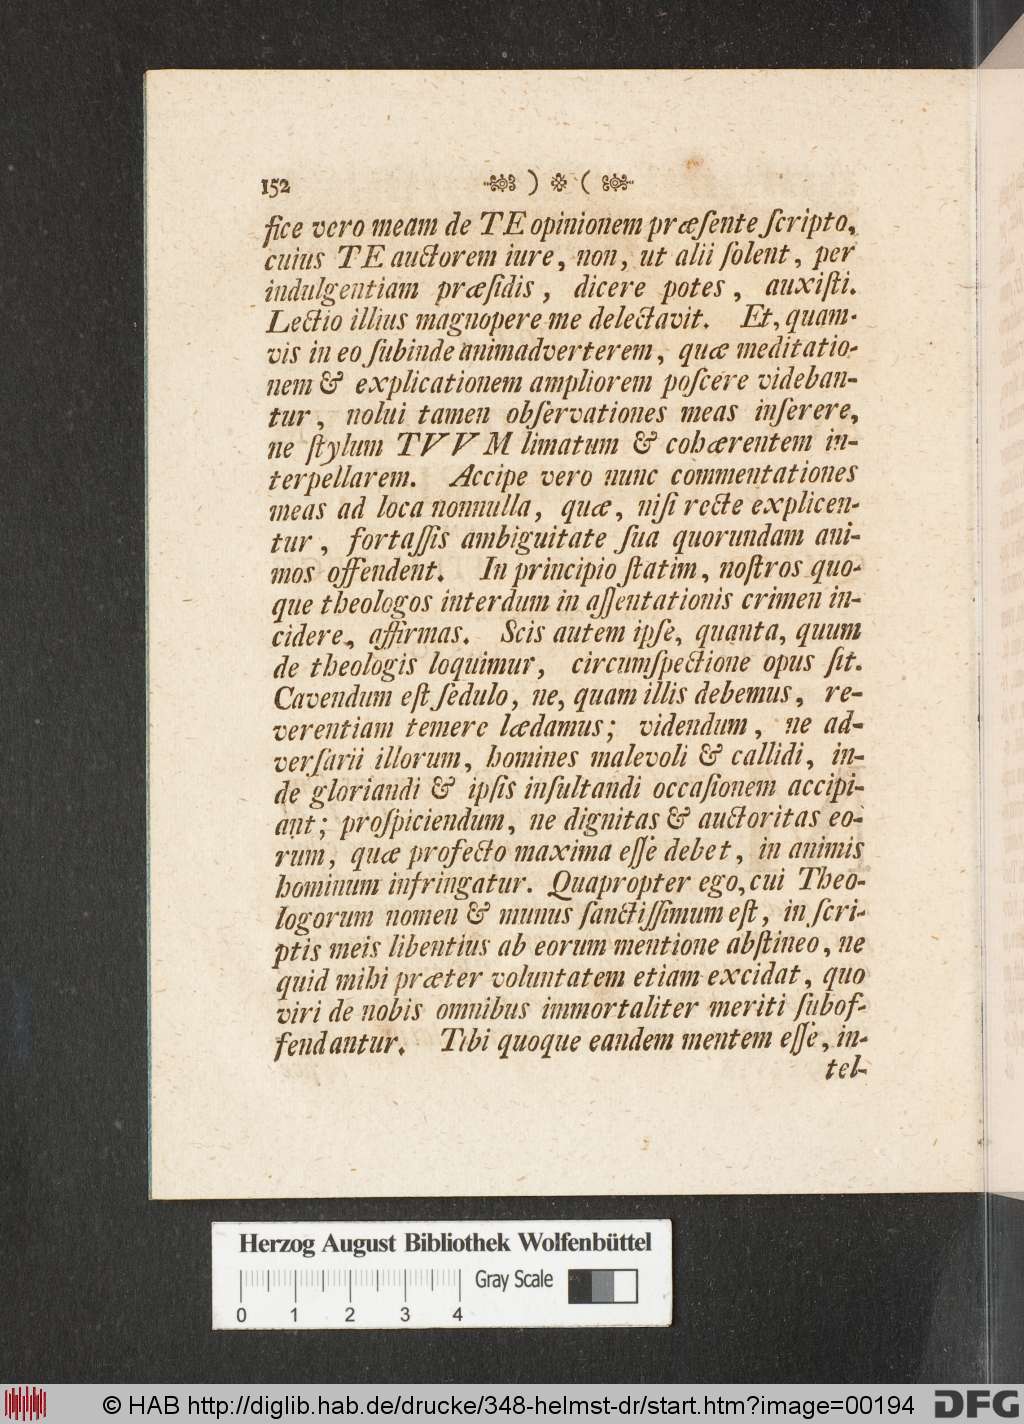 152 ) ❉ (
fice vero meam de TE opinionem præſente ſcripto,
cuius TE auctorem iure, non, ut alii ſolent, per
indulgentiam præſidis, dicere potes, auxiſti.
Lectio illius magnopere me delectavit. Et, quam-
vis in eo ſubinde animadverterem, quæ meditatio-
nem & explicationem ampliorem poſcere videban-
tur, nolui tamen obſervationes meas inſerere,
ne ſtylum TVVM limatum & cohærentem in-
terpellarem. Accipe vero nunc commentationes
meas ad loca nonnulla, quæ, niſi recte explicen-
tur, fortaſſis ambiguitate ſua quorundam ani-
mos offendent. In principio ſtatim, noſtros quo-
que theologos interdum in aſſentationis crimen in-
cidere, affirmas. Scis autem ipſe, quanta, quum
de theologis loquimur, circumſpectione opus ſit.
Cavendum eſt ſedulo, ne, quam illis debemus, re-
verentiam temere lædamus; videndum, ne ad-
verſarii illorum, homines malevoli & callidi, in-
de gloriandi & ipſis inſultandi occaſionem accipi-
ant; proſpiciendum, ne dignitas & auctoritas eo-
rum, quæ profecto maxima eſſe debet, in animis
hominum infringatur. Quapropter ego, cui Theo-
logorum nomen & munus ſanctiſſimum eſt, in ſcri-
ptis meis libentius ab eorum mentione abſtineo, ne
quid mihi præter voluntatem etiam excidat, quo
viri de nobis omnibus immortaliter meriti ſubof-
fendantur. Tibi quoque eandem mentem eſſe, in-
tel-
Herzog August Bibliothek Wolfenbüttel
Gray Scale
0 1 2 3 4
© HAB http://diglib.hab.de/drucke/348-helmst-dr/start.htm?image=00194 DFG